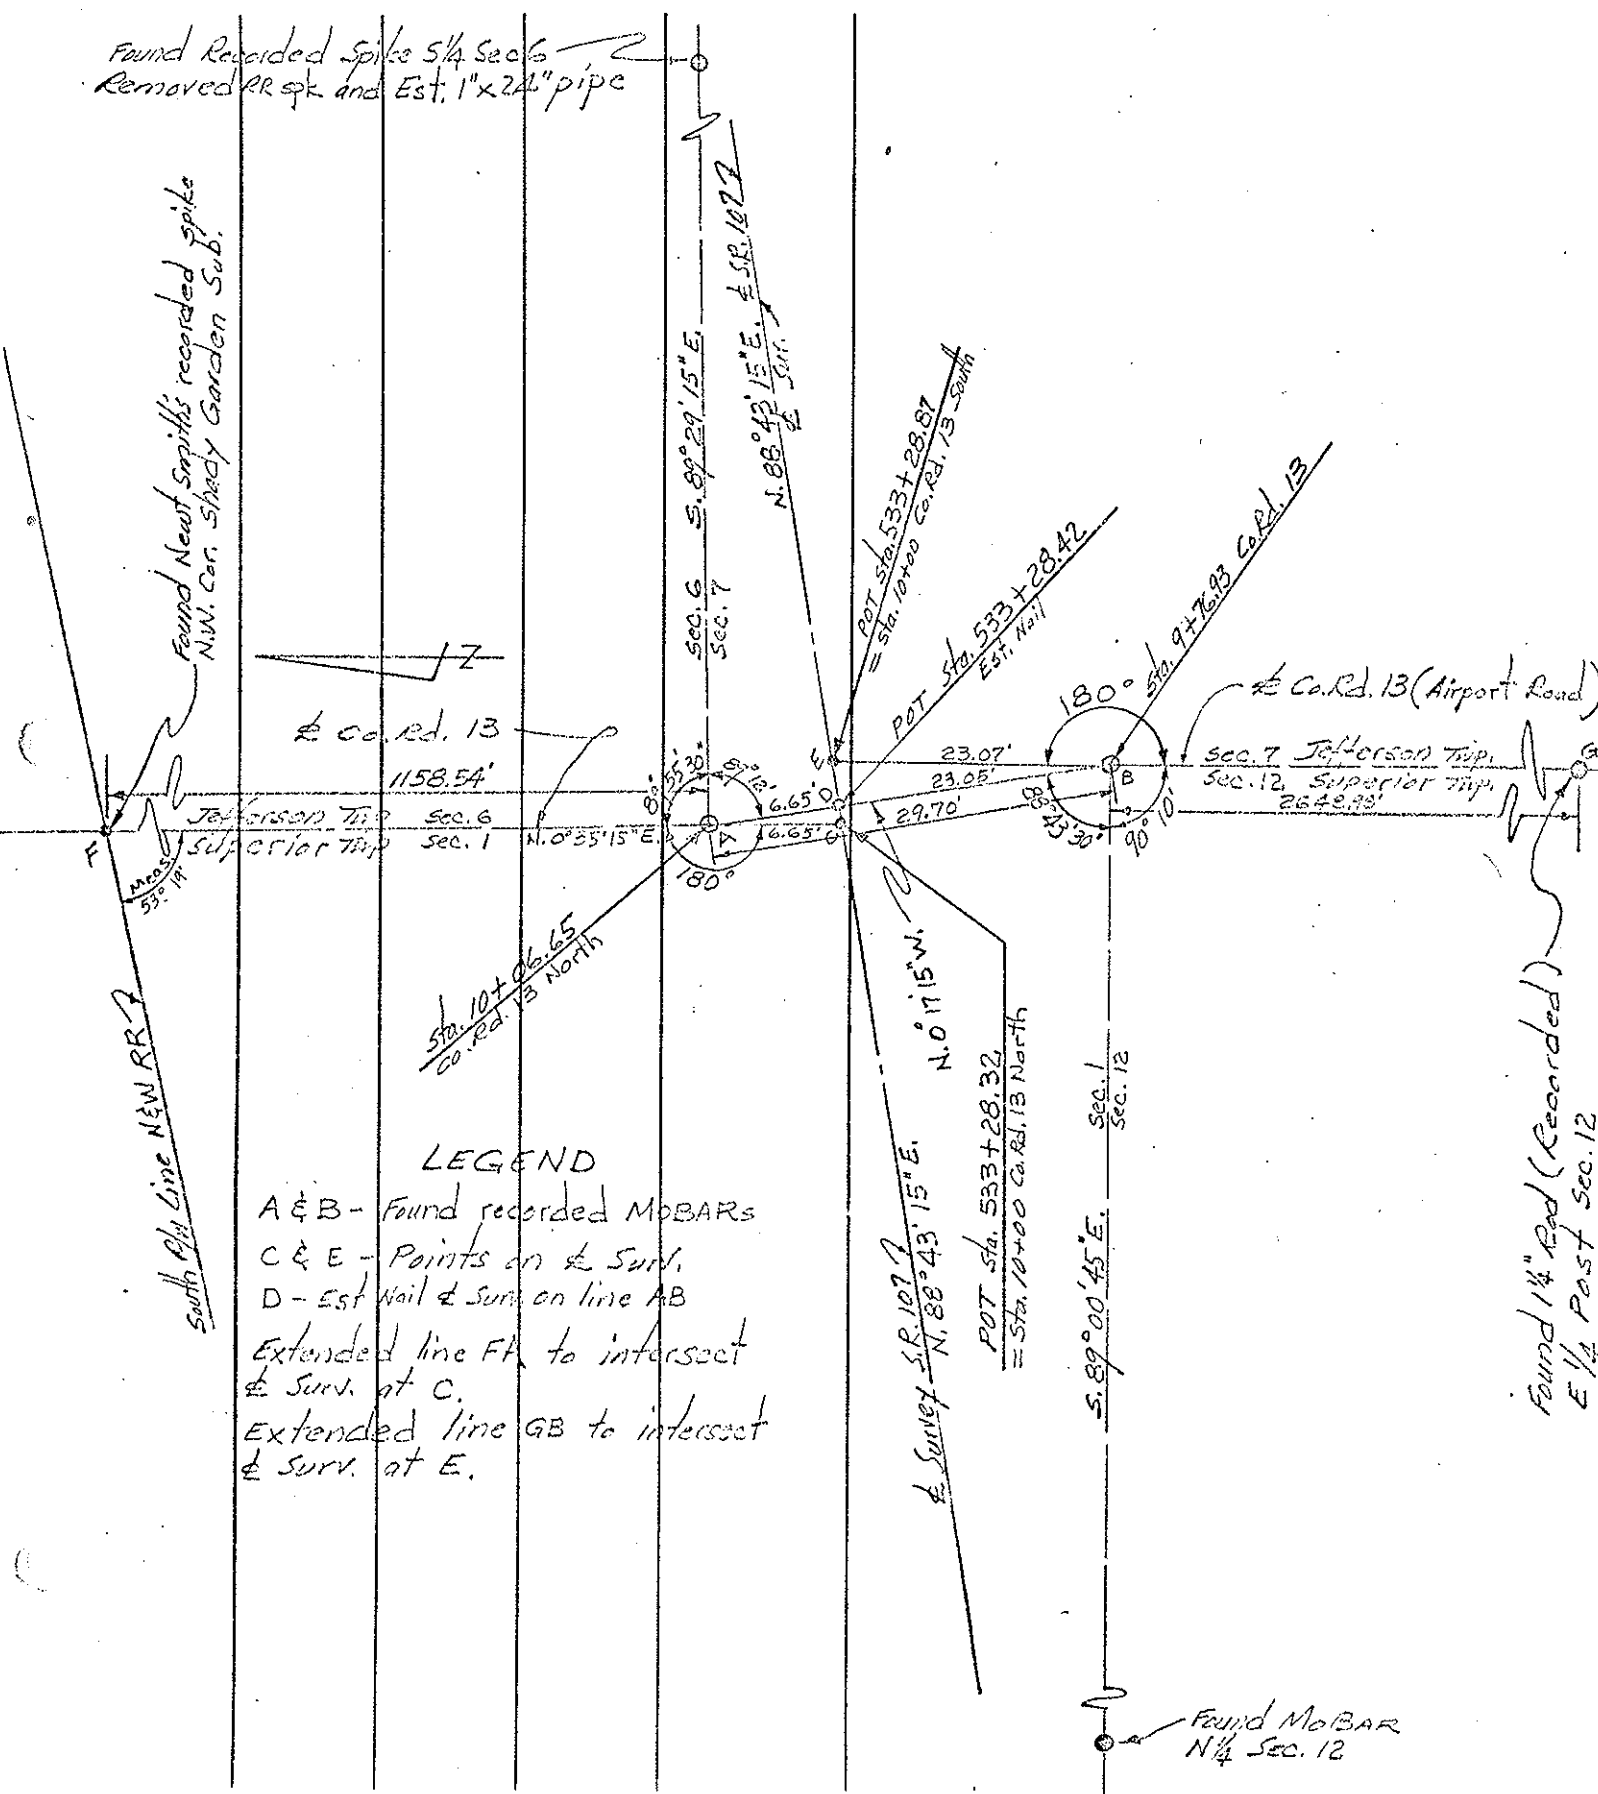 Found Recorded Spike S¼ Sec 6
Removed RR spk and Est. 1"x24" pipe
Found Newt Smith's recorded spike
N.W. Cor. Shady Garden Sub.
S. 89° 29' 15" E.
Sec. 6
Sec. 7
℄ S.R. 107
N. 88° 43' 15" E.
℄ Sur.
POT Sta. 533+28.87
= Sta. 10+00 Co. Rd. 13 South
POT Sta. 533+28.42
Est. Nail
Sta. 9+76.93 Co. Rd. 13
Z
℄ Co. Rd. 13
℄ Co. Rd. 13 (Airport Road)
1158.54'
Jefferson Twp Sec. 6
Superior Twp Sec. 1
N. 0° 35' 15" E.
6.65'
6.65'
180°
A
C
D
E
23.07'
23.05'
29.70'
180°
B
88° 43' 30"
90° 10'
Sec. 7 Jefferson Twp.
Sec. 12 Superior Twp.
G
F
Meas.
53° 19'
Sta. 10+06.65
Co. Rd. 13 North
South R/W Line N&W RR
N. 0° 17' 15" W.
POT Sta. 533+28.32
= Sta. 10+00 Co. Rd. 13 North
Sec. 1
Sec. 12
S. 89° 00' 45" E.
℄ Survey S.R. 107
N. 88° 43' 15" E.
Found 1¼" Rod (Recorded)
E ¼ Post Sec. 12
LEGEND
A & B - Found recorded MOBARs
C & E - Points on ℄ Surv.
D - Est Nail ℄ Surv. on line AB
Extended line FA to intersect
℄ Surv. at C.
Extended line GB to intersect
℄ Surv. at E.
Found MoBAR
N¼ Sec. 12